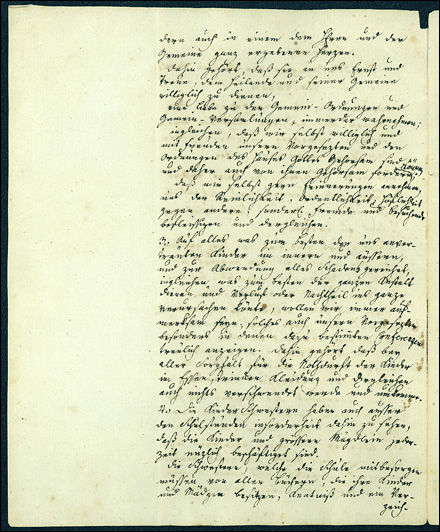 dern auch in einem dem Herrn und der
Gemeine ganz ergebenen Herzen.
Dahin gehört, daß sie in uns Ernst und
Treue dem Heilande und seiner Gemeine
williglich zu dienen,
eine Liebe zu den Gemein-Ordnungen und
Gemein-Versamlungen, immerdar wahrnehmen;
ingleichen, daß wir selbst williglich und
mit Freuden unsern Vorgesezten und den
Ordnungen des Hauses Gottes Gehorsam sind
und daher auch von ihnen Gehorsam fordern können;
daß wir selbst gern Erinnerungen annehmen,
uns der Reinlichkeit, Ordentlichkeit, Höflichkeit
gegen andere, sonderl. Fremde und Besuchende
befleißigen und dergleichen.
3., Auf alles was zum besten der uns anver-
trauten Kinder im innern und äussern,
und zur Abwendung alles Schadens gereichet,
ingleichen, was zum besten der ganzen Anstalt
dienen und Verlust oder Nachtheil ins ganze
verursachen könte, wollen wir immer auf-
merksam seyn, solches auch unsern Vorgesezten
besonders in denen dazu bestimten Conferenzen
treulich anzeigen. Dahin gehört daß bey
aller Sorgfalt für die Nothdurft der Kinder
in Essen, Trinken, Kleidung und dergleichen
auch nichts verschwendet werde und umkomme.
4., Die Kinder Schwestern haben auch ausser
den Schulstunden insonderheit dahin zu sehen,
daß die Kinder und grössern Mägdlein jeder-
zeit nüzlich beschäftiget sind.
Die Schwestern, welche die Schule mitbesorgen
müssen vor allen Büchern, die ihre Kinder
und Mädgen besitzen, Kentniß und ein Ver-
zeich-